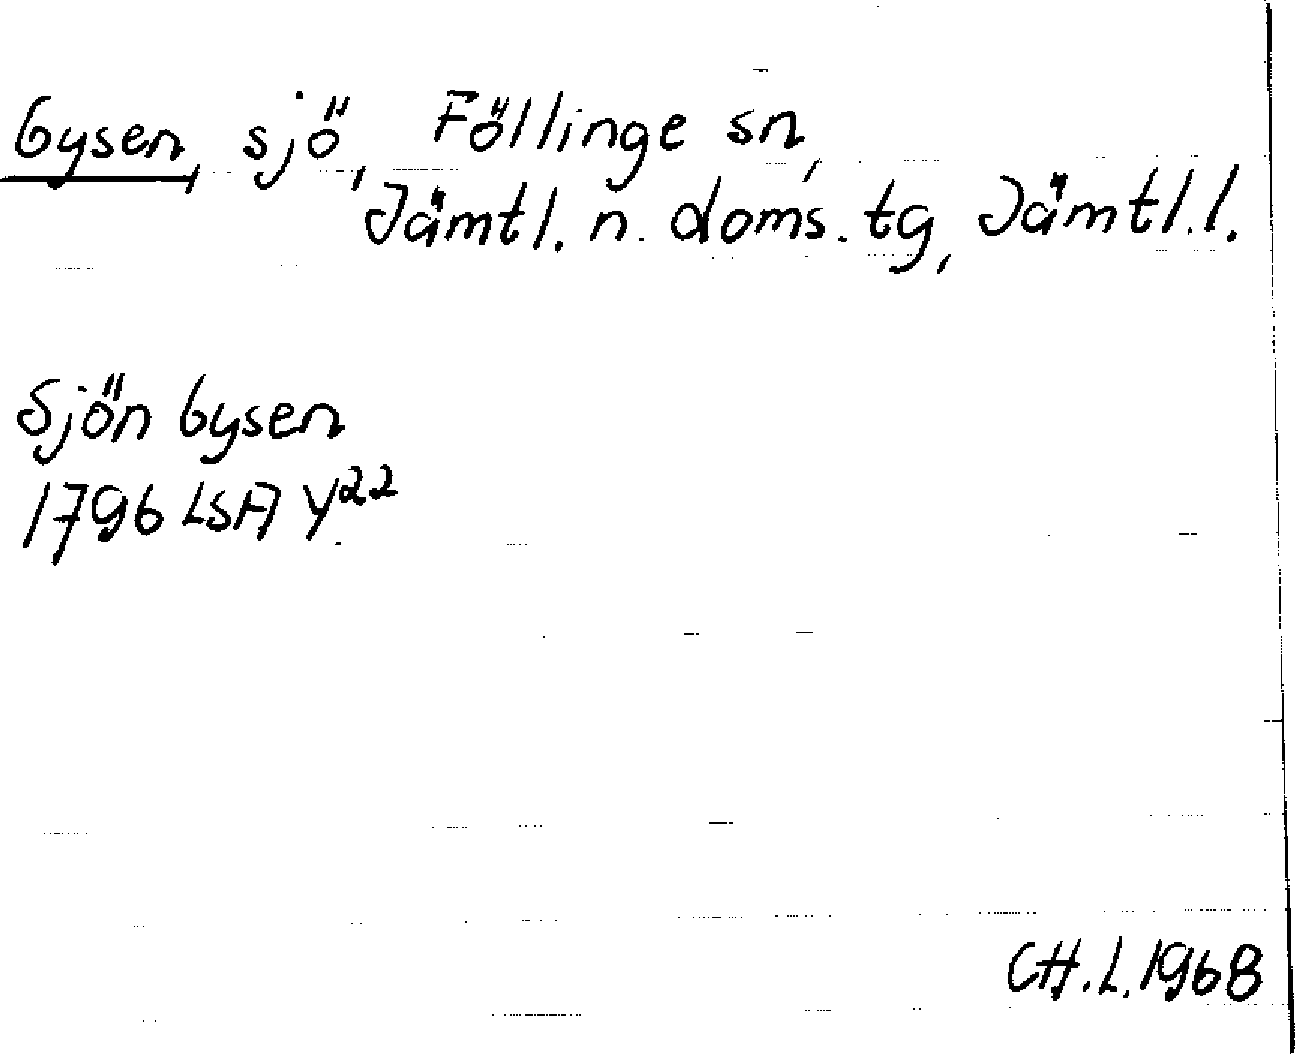 Gysen, sjö, Föllinge sn,
Jämtl. n. doms. tg, Jämtl. l.
Sjön Gysen
1796 LSA Y²²
CH.L. 1968